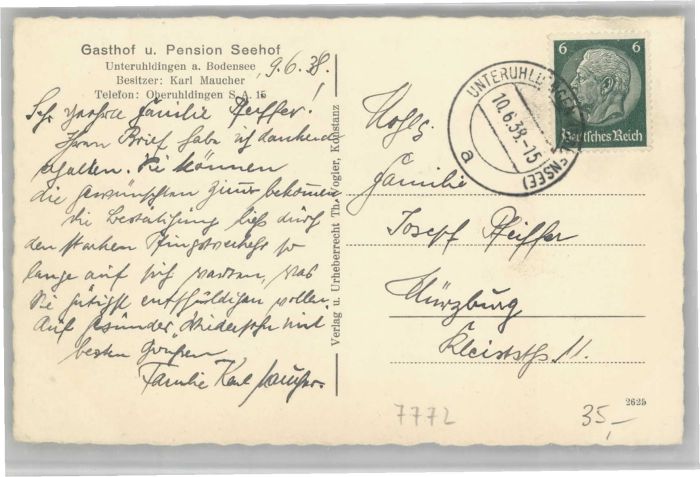 Gasthof u. Pension Seehof
Unteruhldingen a. Bodensee
Besitzer: Karl Maucher
Telefon: Oberuhldingen S.A. 15
9.6.38.
Sehr geehrte Familie Pfeiffer!
Ihren Brief habe ich dankend
erhalten. Sie können
die gewünschten Zimmer bekommen
die Bestätigung ließ durch
den starken Pfingstverkehr so
lange auf sich warten, was
Sie gütigst entschuldigen wollen.
Auf gesundes Wiedersehn mit
besten Grüßen
Familie Karl Maucher
Verlag u. Urheberrecht Th. Vogler, Konstanz
6 6
Deutsches Reich
UNTERUHLDINGEN
10.6.38.-15
a
Familie
Josepf Pfeiffer
Würzburg
Kleiststr. 11.
2625
7772
35,-